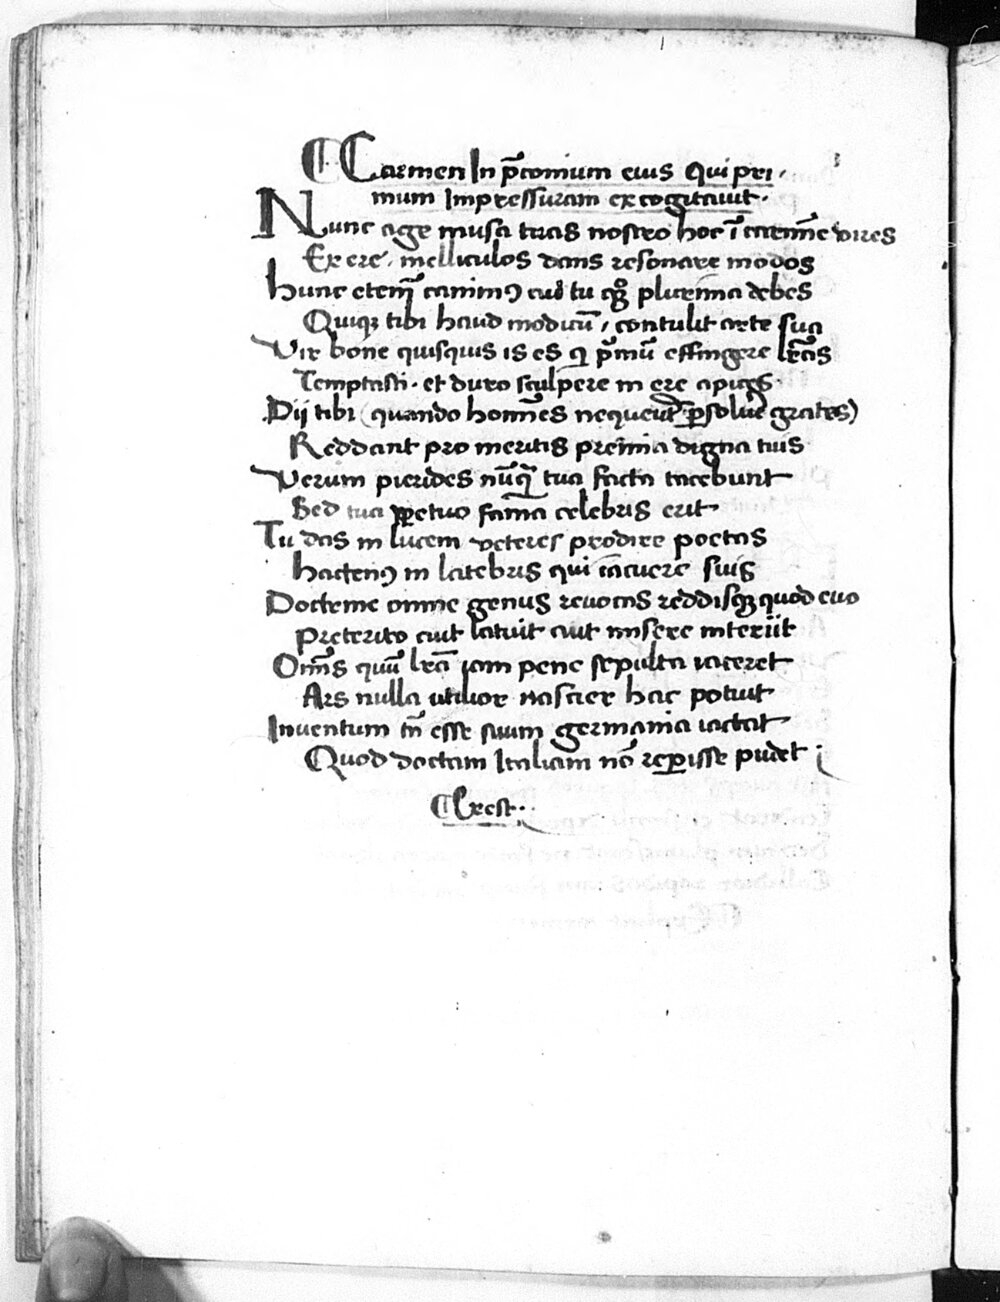 Carmen In p̄conium eius Qui pri-
mum Impressuram excogitauit.
Nunc age musa tuas nostro hoc ī carmīe vires
Exere, melliculos dans resonare modos
Hunc etem̄ canimꝰ cui tu qͦqꝫ plurima debes
Quiqꝫ tibi haud modicū, contulit arte sua
Vir bone quisquis is es qi p̄mū effingere lr̄as
Temptasti. et duro sculpere in ere apices
Dij tibi (quando homīes nequeūt ꝑsoluē grates)
Reddant pro meritis premia digna tuis
Verum pierides nūqͣ̄ tua facta tacebunt
Sed tua ꝑpetuo fama celebris erit
Tu das in lucem veteres prodire poetas
Hactenꝰ in latebris qui iacuere suis
Docteme omne genus reuocas reddisqꝫ quod euo
Preterito aut latuit aut misere interiit
Om̄is quū lr̄a iam pene sepulta iaceret
Ars nulla utilior nascier hac potuit
Inuentum tn̄ esse suum germania iactat
Quod doctam Italiam nō reꝑisse pudet